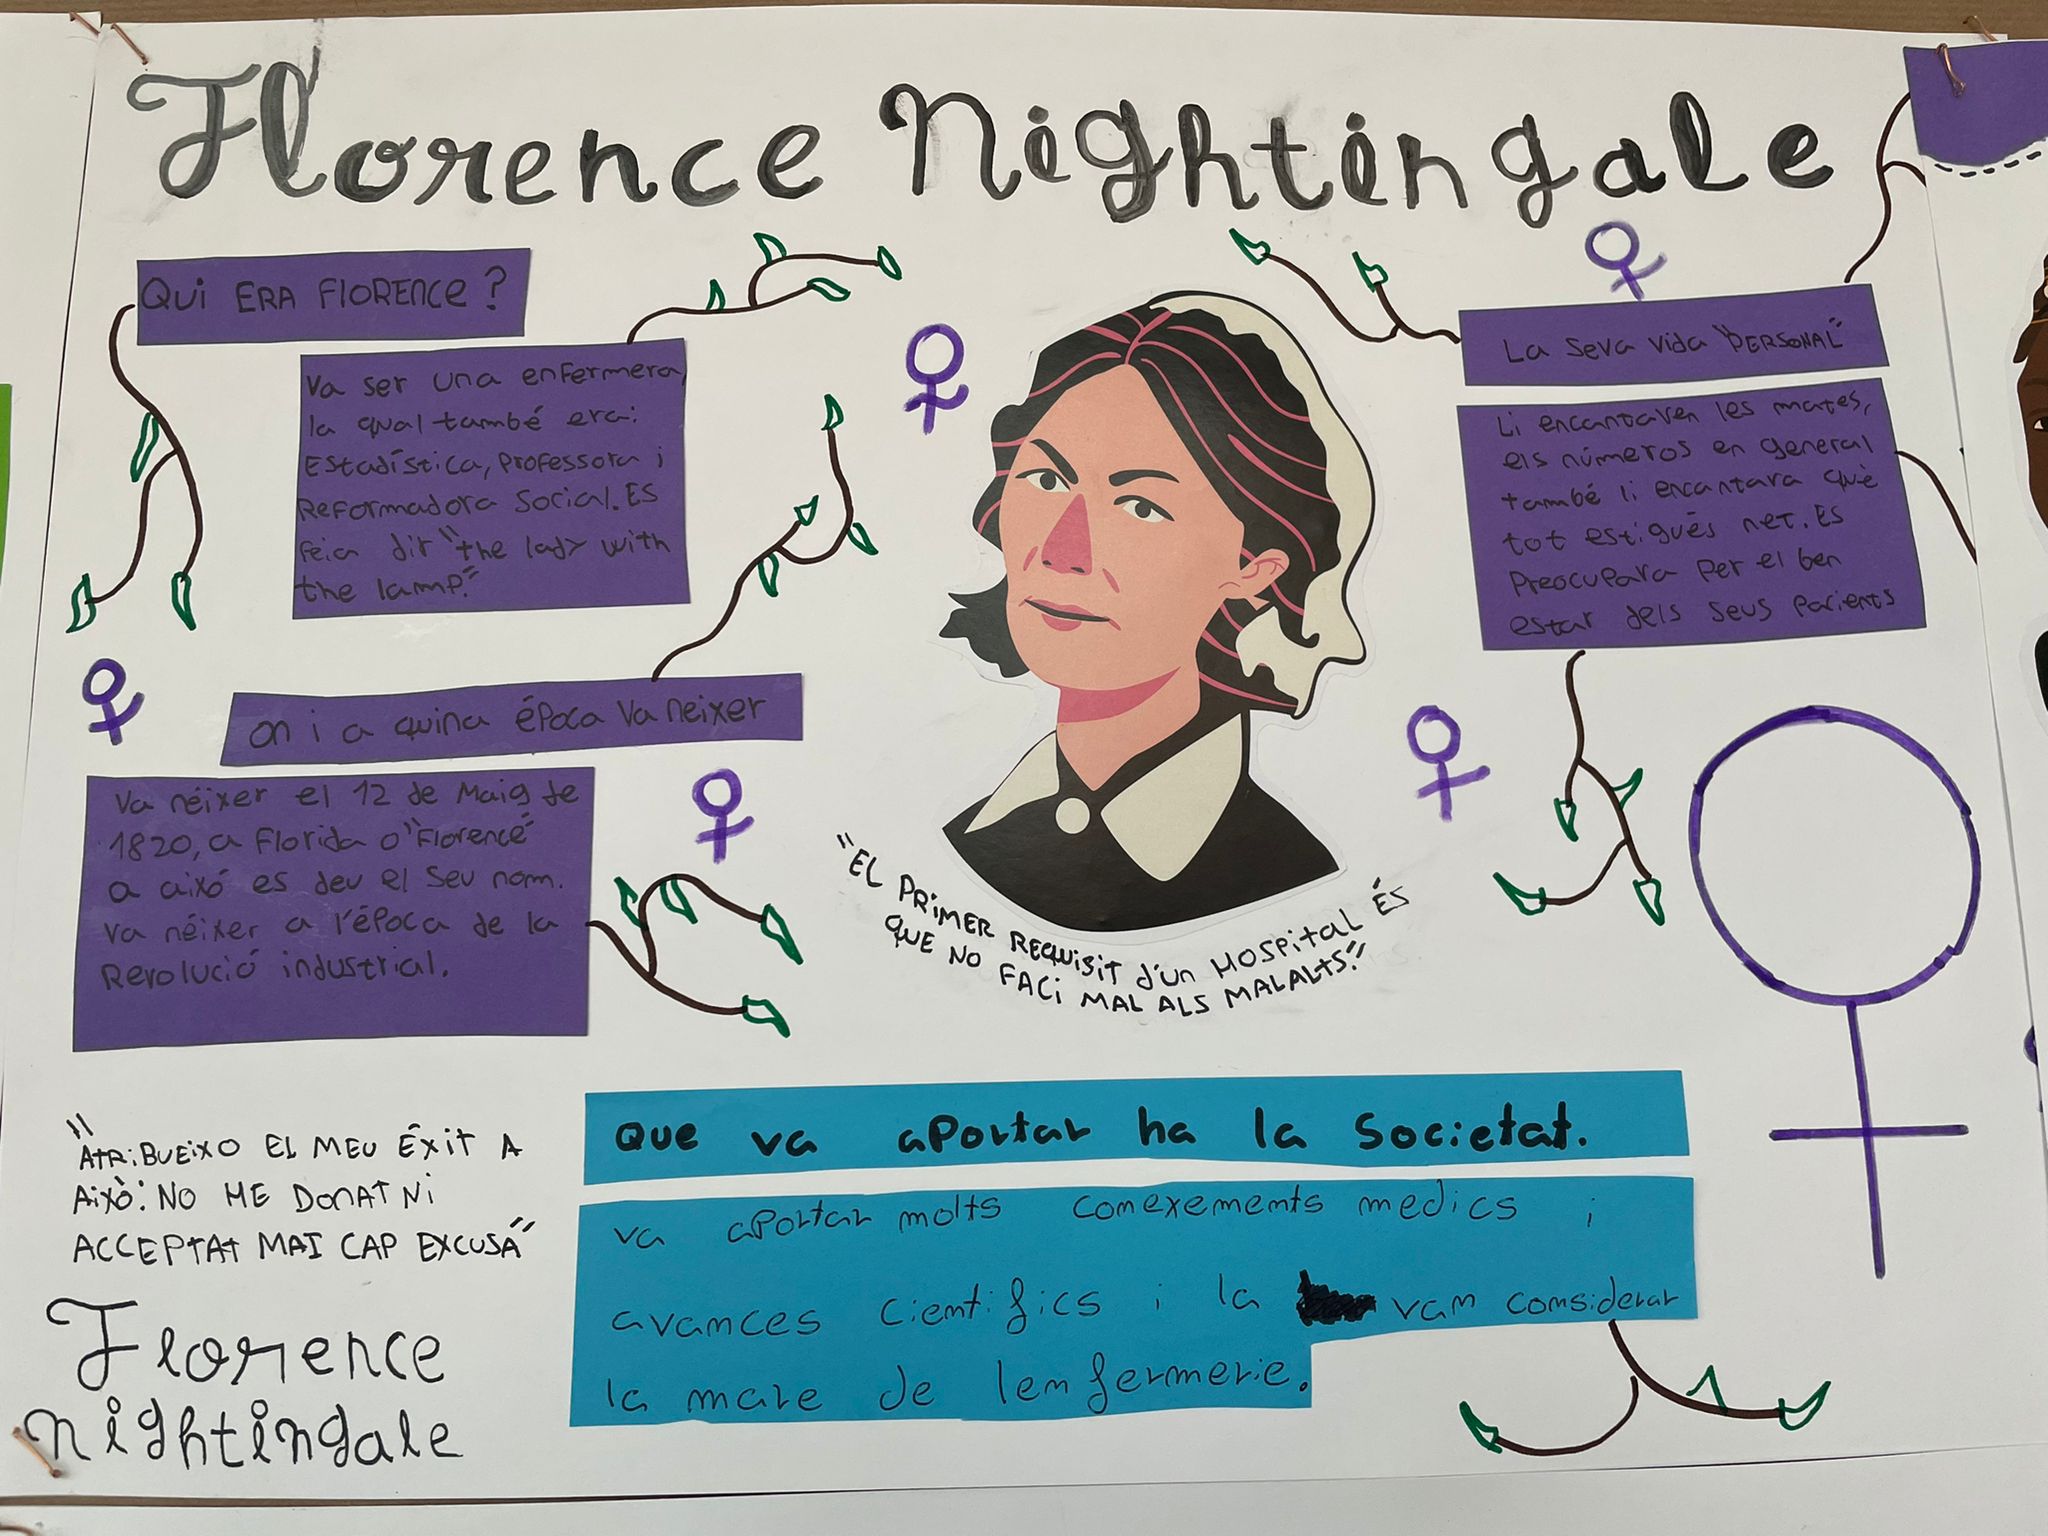 Florence Nightingale
Qui ERA FLORENCE?
Va ser una enfermera,
la qual també era:
Estadística, Professora i
Reformadora Social. Es
feia dir "the lady with
the lamp."
on i a quina época va neixer
Va néixer el 12 de Maig de
1820, a Florida o "Florence"
a aixó es deu el seu nom.
Va néixer a l'época de la
Revolució industrial.
"ATRIBUEIXO EL MEU ÉXIT A
AIXÒ: NO HE DONAT NI
ACCEPTAT MAI CAP EXCUSA"
Florence
Nightingale
"EL PRIMER REQUISIT d'un HOSPITAL ÉS
QUE NO FACI MAL ALS MALALTS."
La seva vida "PERSONAL"
Li encantaven les mates,
els números en general
també li encantava què
tot estigués net. Es
Preocupava per el ben
estar dels seus pacients
Que va aportar ha la Societat.
va aportar molts conexements medics i
avances cientifics i la vam considerar
la mare de lenfermerie.